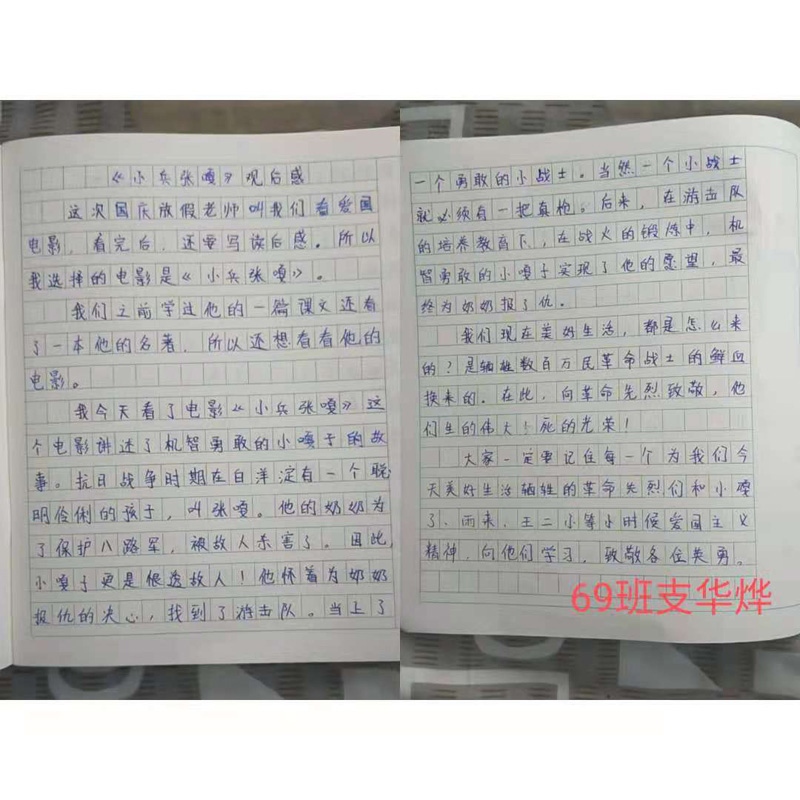 《小兵张嘎》观后感
这次国庆放假老师叫我们看爱国
电影，看完后，还要写读后感。所以
我选择的电影是《小兵张嘎》。
我们之前学过他的一篇课文还看
了一本他的名著，所以还想看看他的
电影。
我今天看了电影《小兵张嘎》这
个电影讲述了机智勇敢的小嘎子的故
事。抗日战争时期在白洋淀有一个聪
明伶俐的孩子，叫张嘎。他的奶奶为
了保护八路军，被敌人杀害了。因此，
小嘎子更是恨透敌人！他怀着为奶奶
报仇的决心，找到了游击队。当上了
一个勇敢的小战士。当然一个小战士
就必须有一把真枪。后来，在游击队
的培养教育下，在战火的锻炼中，机
智勇敢的小嘎子实现了他的愿望，最
终为奶奶报了仇。
我们现在美好生活，都是怎么来
的？是牺牲数百万民革命战士的鲜血
换来的。在此，向革命先烈致敬，他
们生的伟大！死的光荣！
大家一定要记住每一个为我们今
天美好生活牺牲的革命先烈们和小嘎
子、雨来、王二小等小时候爱国主义
精神，向他们学习，致敬各位英勇。
69班支华烨